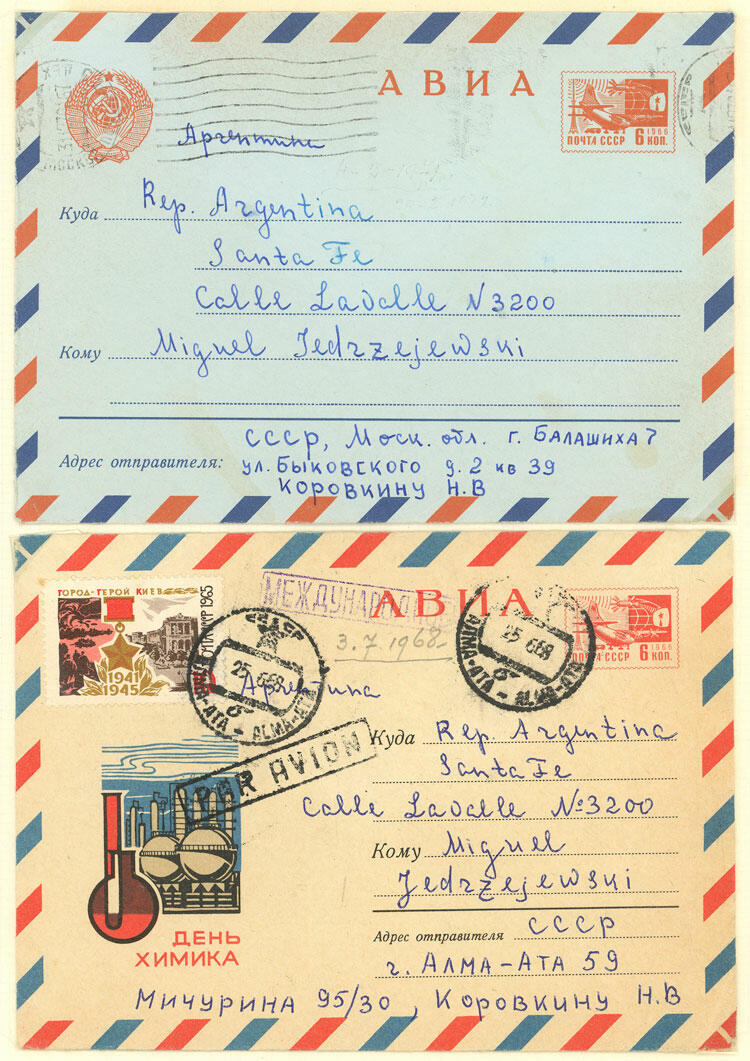 АВИА
1966
ПОЧТА СССР 6 КОП.
Аргентина
Куда Rep. Argentina
Santa Fe
Calle Lavalle N 3200
Кому Miguel Jedrzejewski
СССР, Моск. обл. г. БАЛАШИХА 7
Адрес отправителя: ул. БЫКОВСКОГО д. 2 кв 39
КОРОВКИНУ Н.В
ГОРОД-ГЕРОЙ КИЕВ
1941
1945
МЕЖДУНАРОДНОЕ
АВИА
1966
ПОЧТА СССР 6 КОП.
СССР
25 6 68
АЛМА-АТА - ALMA-ATA
25 6 68
АЛМА-АТА - ALMA-ATA
3.7.1968
Аргентина
PAR AVION
Куда Rep. Argentina
Santa Fe
Calle Lavalle № 3200
Кому Miguel
Jedrzejewski
Адрес отправителя СССР
г. АЛМА-АТА 59
МИЧУРИНА 95/30, КОРОВКИНУ Н.В
ДЕНЬ
ХИМИКА